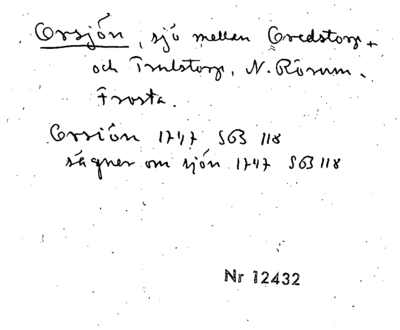 Orsjön, sjö mellan Ovedstorp
och Trulstorp, N. Rörum.
Frosta.
Orsiön 1747 SGB 118
sägner om sjön 1747 SGB 118
Nr 12432